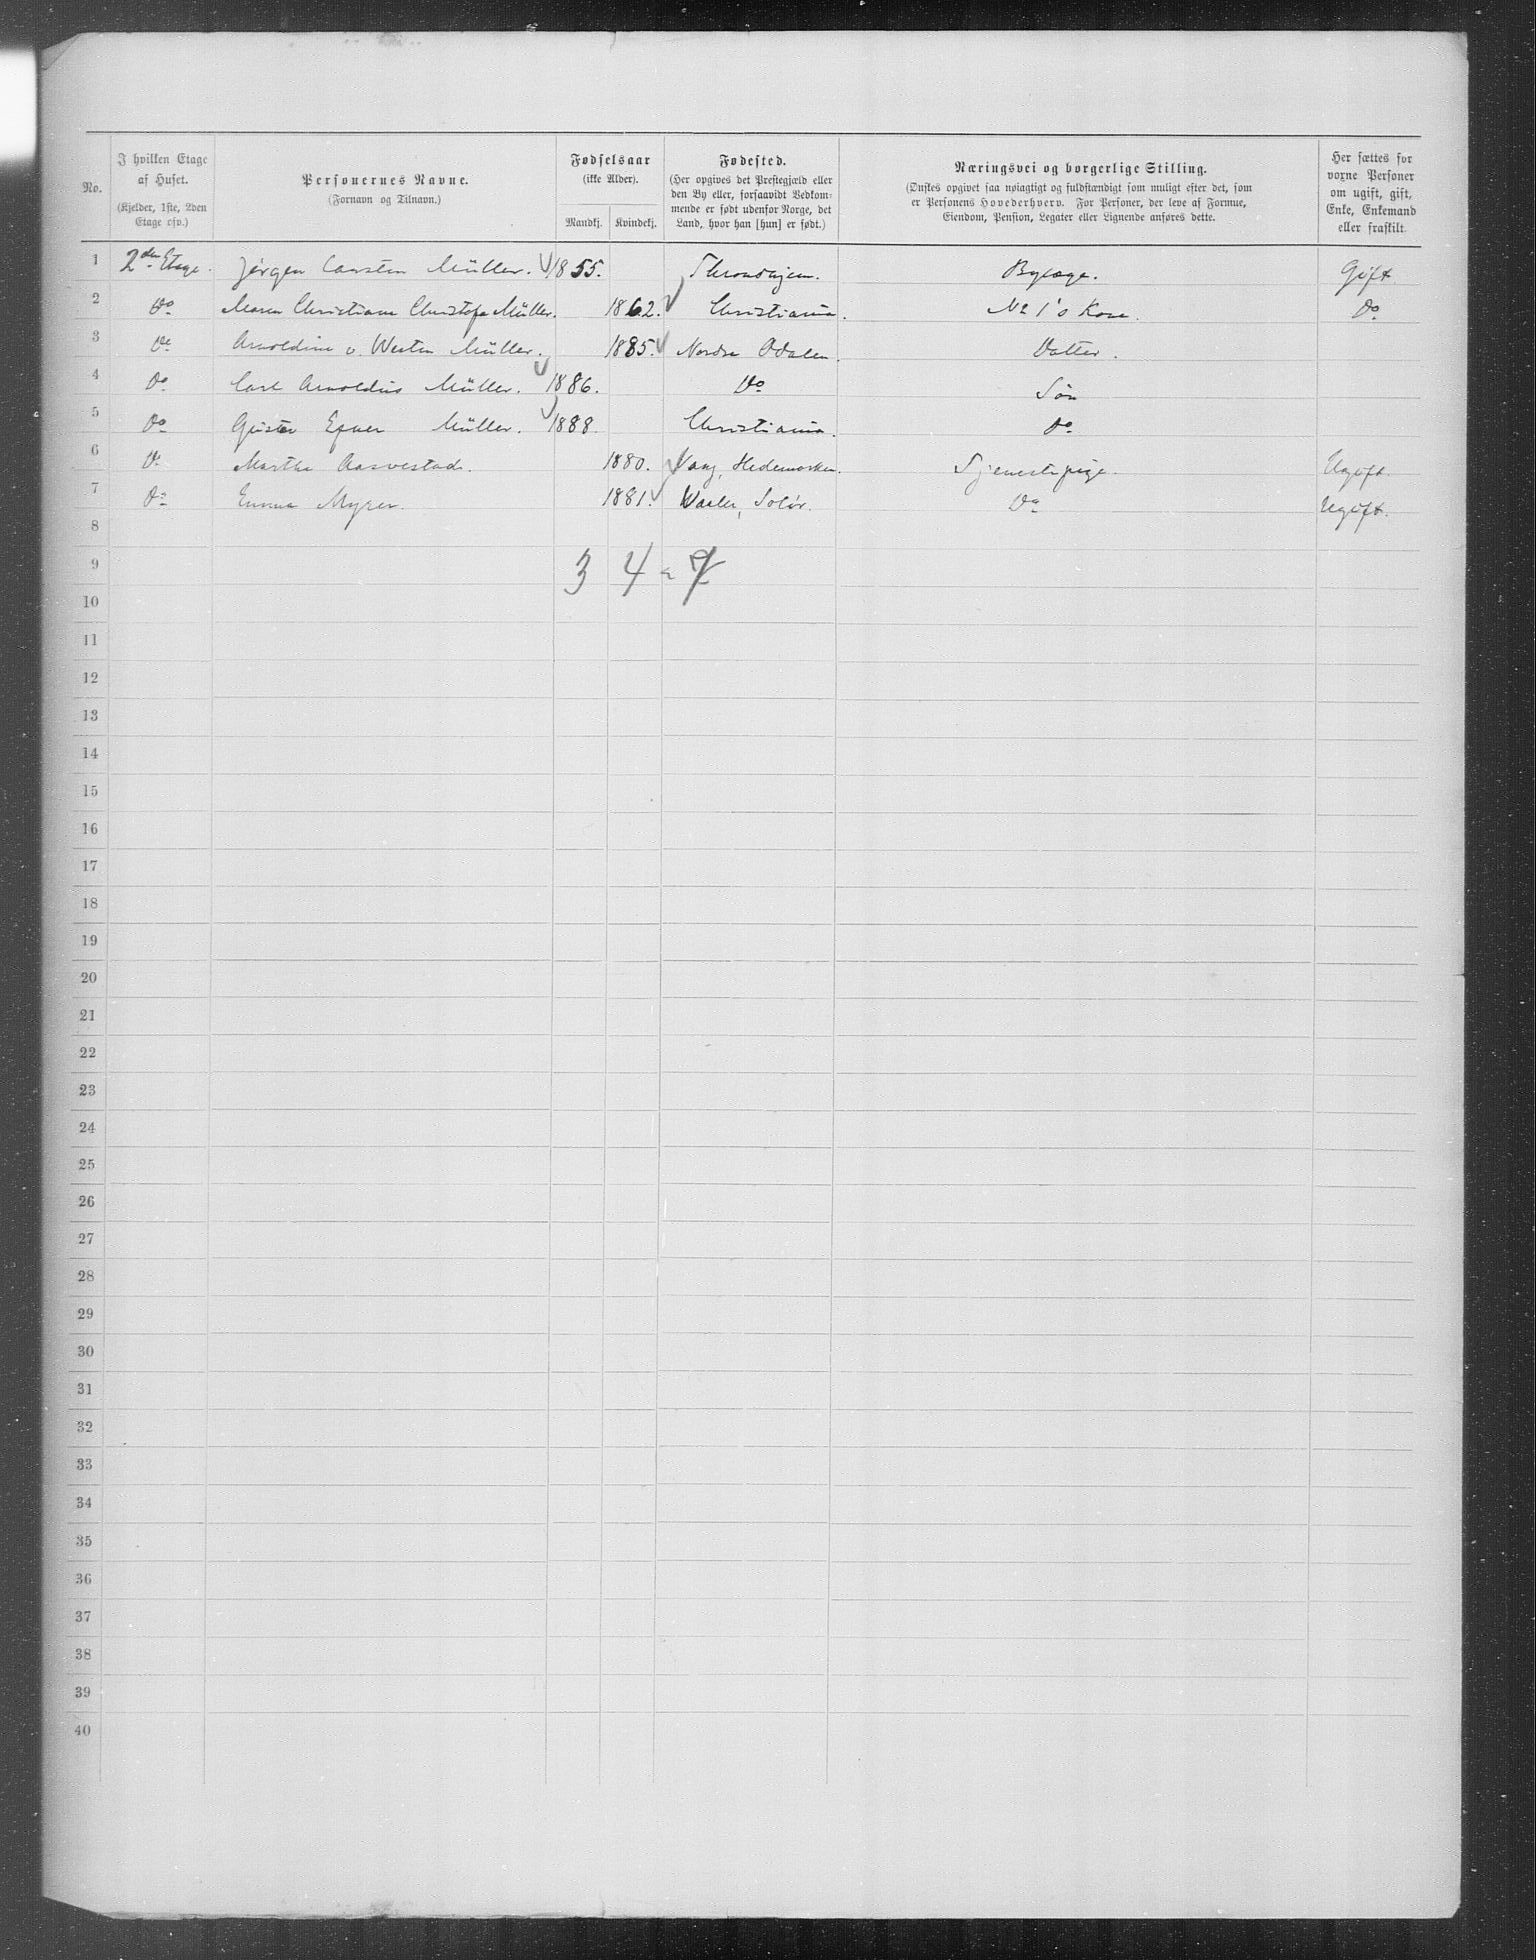 No.
I hvilken Etage af Huset.
(Kjelder, 1ste, 2den Etage osv.)
Personernes Navne.
(Fornavn og Tilnavn.)
Fødselsaar
(ikke Alder).
Mandkj. Kvindekj.
Fødested.
(Her opgives det Prestegjæld eller
den By eller, forsaavidt Vedkom-
mende er født udenfor Norge, det
Land, hvor han [hun] er født.)
Næringsvei og borgerlige Stilling.
(Ønskes opgivet saa nøiagtigt og fuldstændigt som muligt efter det, som
er Personens Hovederhverv. For Personer, der leve af Formue,
Eiendom, Pension, Legater eller Lignende anføres dette.
Her sættes for
voxne Personer
om ugift, gift,
Enke, Enkemand
eller fraskilt.
1 2den Etage. Jørgen Carsten Müller. 1855. Throndhjem. Bylæge. Gift
2 Do Maren Christiane Christofa Müller. 1862. Christiania. No 1's Kone. Do
3 Do Arnoldine v. Westen Müller. 1885. Nordre Odalen. Datter.
4 Do Carl Arnoldus Müller. 1886. Do Søn
5 Do Gustav Müller. 1888. Christiania. Do
6 Do Martha Aasvestad. 1880. Vang, Hedemarken. Tjenestepige. Ugift.
7 Do Emma Myrer. 1881. Vaaler, Solør. Do Ugift.
8
9 3 4 = 7
10
11
12
13
14
15
16
17
18
19
20
21
22
23
24
25
26
27
28
29
30
31
32
33
34
35
36
37
38
39
40